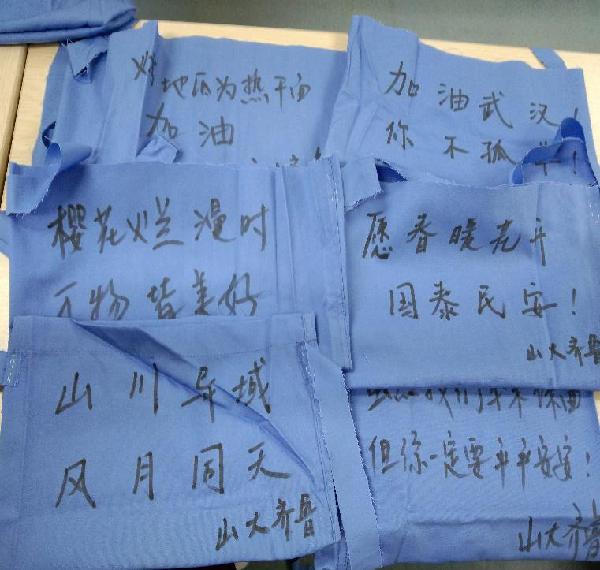 烤地瓜为热干面
加油
加油武汉!
你不孤单!
樱花烂漫时
万物皆美好
愿春暖花开
国泰民安!
山大齐鲁
山川异域
风月同天
山大齐鲁
但你一定要平平安安!
山大齐鲁